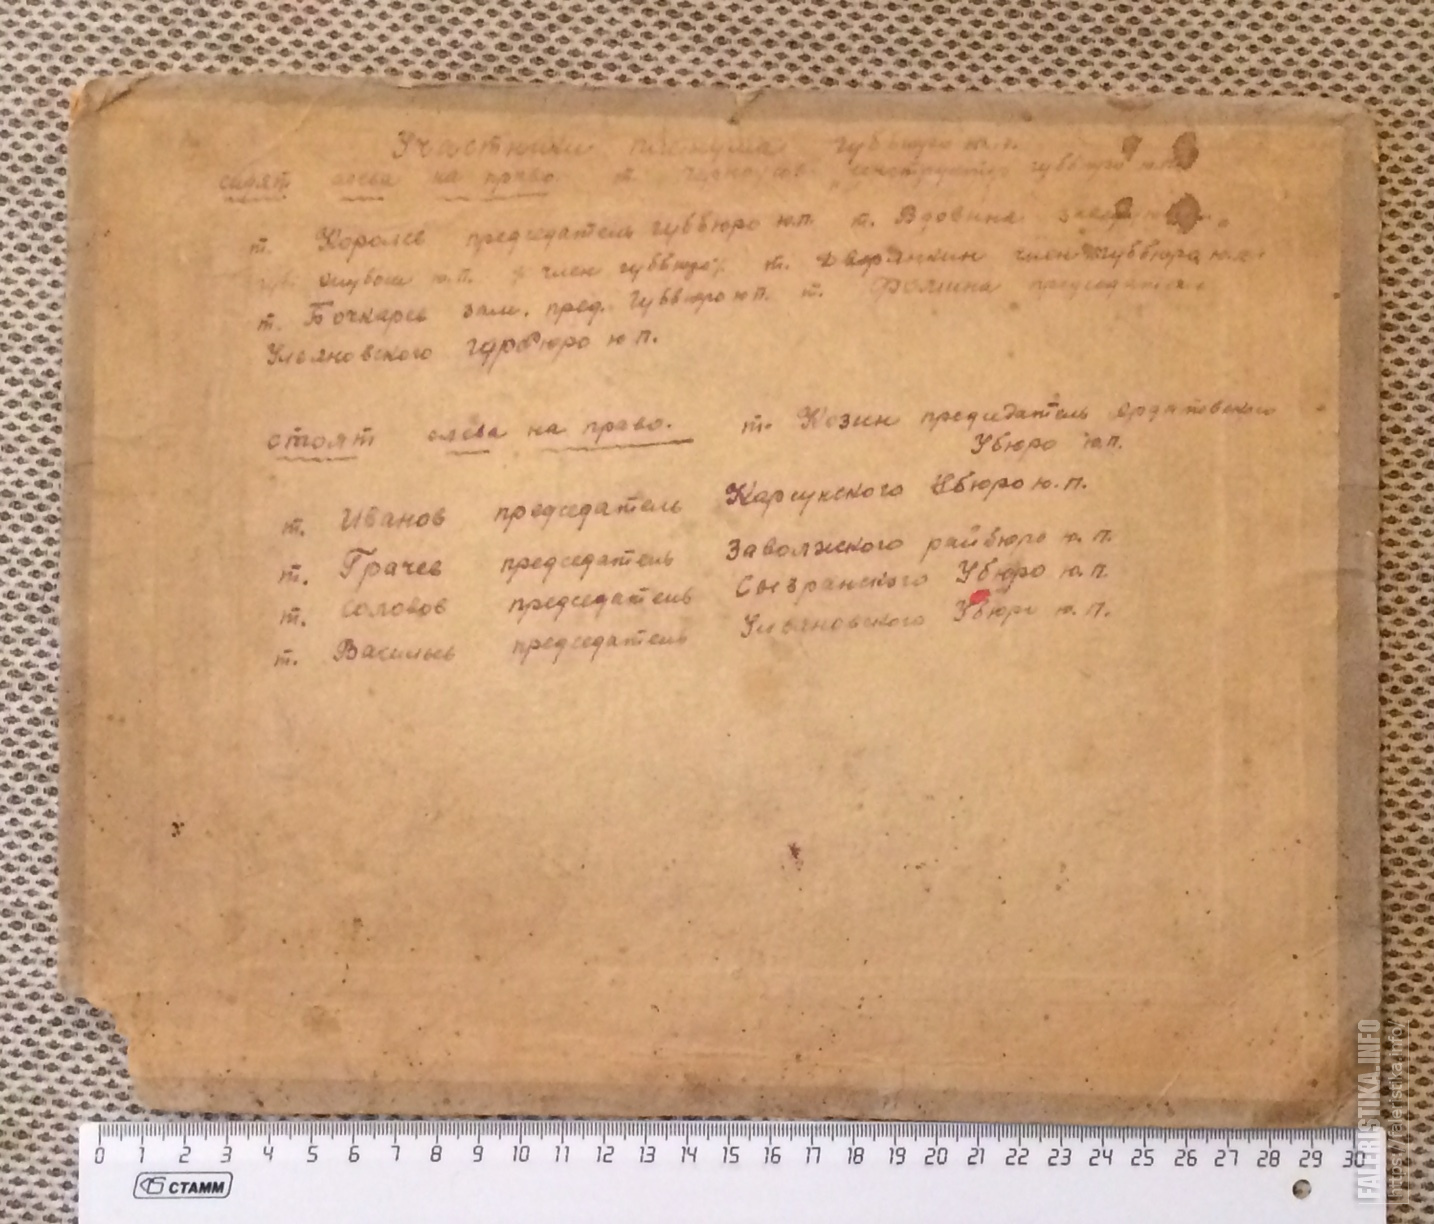 Участники пленума губбюро ю.п.
сидят слева на право т. инструктор губбюро ю.п.
т. Королев председатель губбюро ю.п. т. Вдовина
ю.п. член губбюро т. Дворянкин член губбюро ю.п.
т. Бочкарев зам. пред. губбюро ю.п. т. Фомина председатель
Ульяновского горбюро ю.п.
стоят слева на право. т. Козин председатель Ардатовского
Убюро ю.п.
т. Иванов председатель Карсунского Убюро ю.п.
т. Грачев председатель Заволжского райбюро ю.п.
т. Соловов председатель Сызранского Убюро ю.п.
т. Васильев председатель Ульяновского Убюро ю.п.
0 1 2 3 4 5 6 7 8 9 10 11 12 13 14 15 16 17 18 19 20 21 22 23 24 25 26 27 28 29 30
СТАММ
FALERISTIKA.INFO
https://faleristika.info/